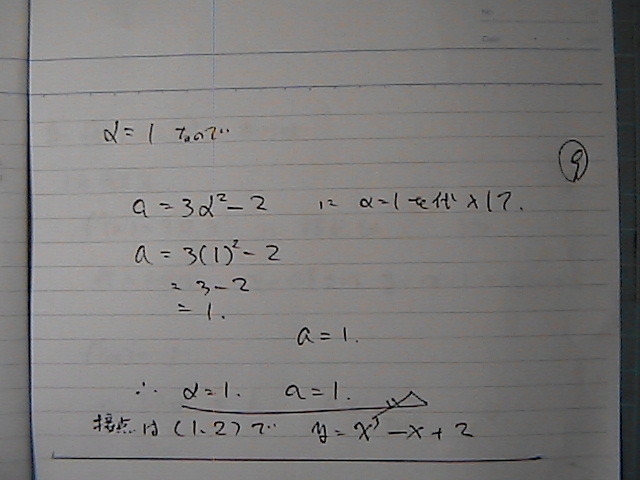 No.
Date
α = 1 なので
9
a = 3α² - 2 に α = 1 を代入して.
a = 3(1)² - 2
= 3 - 2
= 1.
a = 1.
∴ α = 1. a = 1.
接点は (1.2) で y = x³ - x + 2